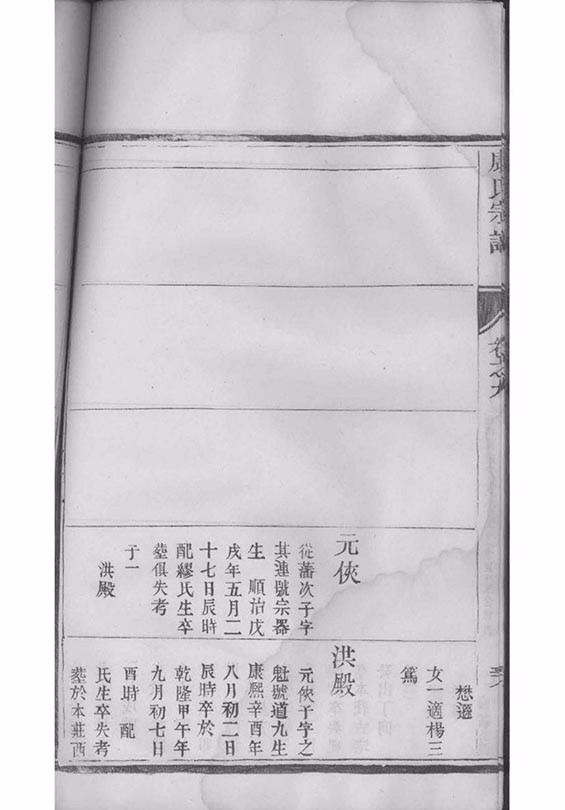 氏宗譜
元俠
從藩次子字
其連號宗器
生 順治戊
戌年五月二
十七日辰時
配繆氏生卒
塟俱失考
子一
洪殿
懋
女一適楊三
篤
洪殿
元俠子字之
魁號道九生
康熙辛酉年
八月初二日
辰時卒於
乾隆甲午年
九月初七日
酉時 配
氏生卒失考
塟於本莊西